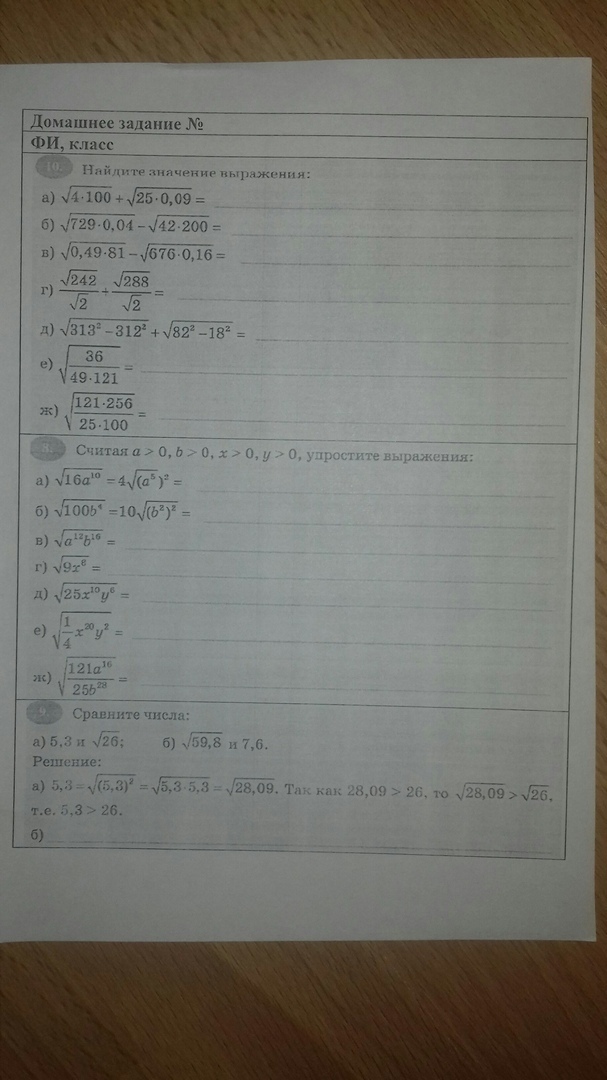 Домашнее задание №
ФИ, класс
10. Найдите значение выражения:
а) √(4·100) + √(25·0,09) =
б) √(729·0,04) − √(42·200) =
в) √(0,49·81) − √(676·0,16) =
г) √242/√2 + √288/√2 =
д) √(313² − 312²) + √(82² − 18²) =
е) √(36/(49·121)) =
ж) √((121·256)/(25·100)) =
8. Считая a > 0, b > 0, x > 0, y > 0, упростите выражения:
а) √(16a¹⁰) = 4√(a⁵)² =
б) √(100b⁴) = 10√(b²)² =
в) √(a¹²b¹⁶) =
г) √(9x⁶) =
д) √(25x¹⁰y⁶) =
е) √(1/4 x²⁰y²) =
ж) √(121a¹⁶/25b²⁸) =
9. Сравните числа:
а) 5,3 и √26; б) √59,8 и 7,6.
Решение:
а) 5,3 = √(5,3)² = √(5,3·5,3) = √28,09. Так как 28,09 > 26, то √28,09 > √26,
т.е. 5,3 > 26.
б)